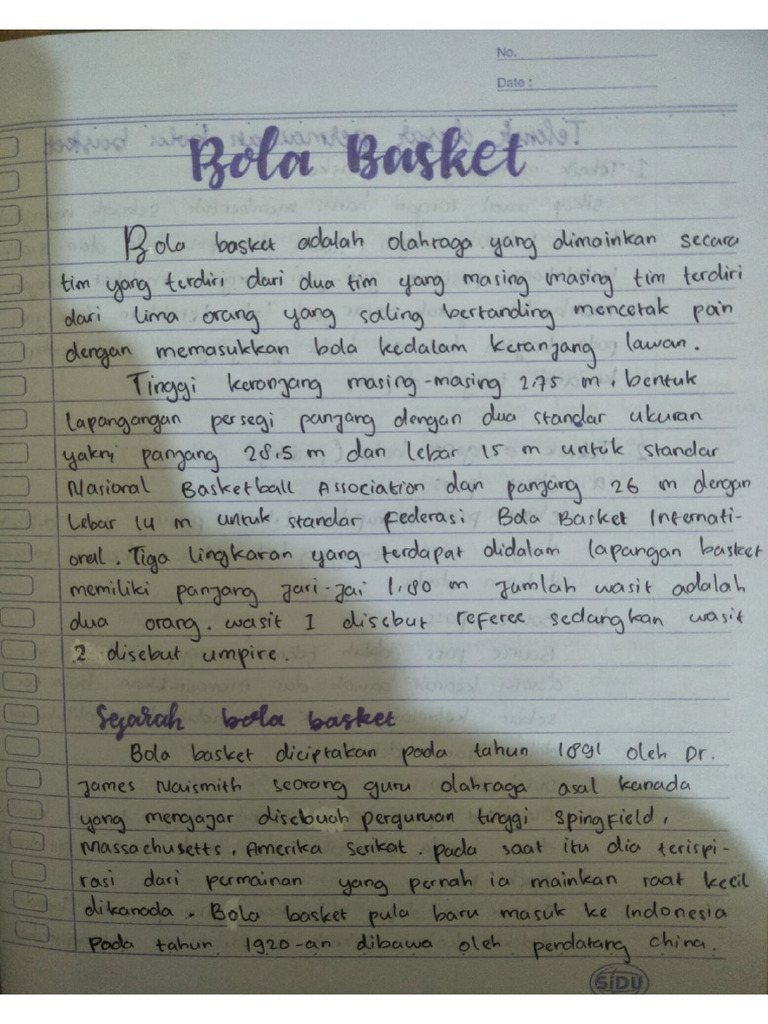 No.
Date :
Bola Basket
Bola basket adalah olahraga yang dimainkan secara
tim yang terdiri dari dua tim yang masing masing tim terdiri
dari lima orang yang saling bertanding mencetak poin
dengan memasukkan bola kedalam keranjang lawan.
Tinggi keranjang masing-masing 2.75 m, bentuk
lapangangan persegi panjang dengan dua standar ukuran
yakni panjang 28.5 m dan lebar 15 m untuk standar
Nasional Basketball Association dan panjang 26 m dengan
lebar 14 m untuk standar Federasi Bola Basket Internati-
onal. Tiga lingkaran yang terdapat didalam lapangan basket
memiliki panjang jari-jai 1.80 m Jumlah wasit adalah
dua orang. wasit 1 disebut referee sedangkan wasit
2 disebut umpire.
Sejarah bola basket
Bola basket diciptakan pada tahun 1891 oleh Dr.
James Naismith seorang guru olahraga asal kanada
yang mengagar disebuah perguruan tinggi Spingfield,
Massachusetts, Amerika Serikat. pada saat itu dia terispi-
rasi dari permainan yang pernah ia mainkan saat kecil
dikanada. Bola basket pula baru masuk ke Indonesia
pada tahun 1920-an dibawa oleh pendatang china.
SiDU